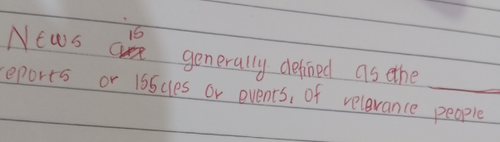 News is generally defined as the ______
reports or issues or events, of relevance people